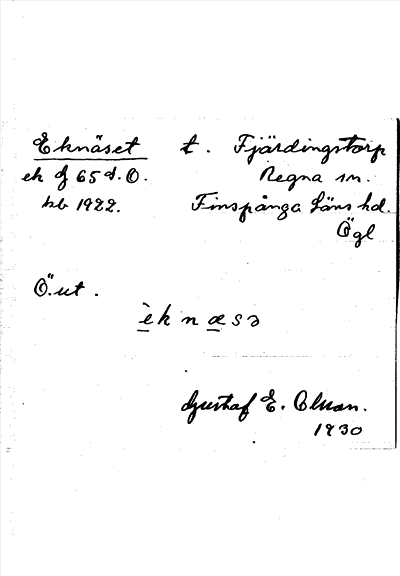 Eknäset t. Fjärdingstorp
ek f 65 d. O. Regna sn.
kb 1922. Finspånga läns hd.
Ögl
Ö. ut.
èknæsə
Gustaf E. Olsson.
1930